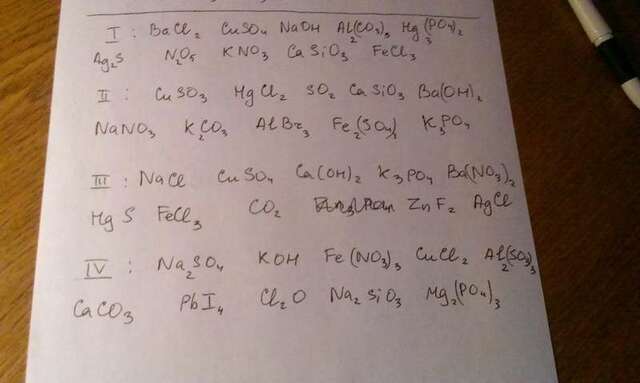 I : BaCl₂ CuSO₄ NaOH Al₂(CO₄)₃ Hg₃(PO₄)₂
Ag₂S N₂O₅ KNO₃ CaSiO₃ FeCl₃
II : CuSO₃ HgCl₂ SO₂ CaSiO₃ Ba(OH)₂
NaNO₃ K₂CO₃ AlBr₃ Fe₂(SO₄)₃ K₃PO₄
III : NaCl CuSO₄ Ca(OH)₂ K₃PO₄ Ba(NO₃)₂
HgS FeCl₃ CO₂ ZnF₂ AgCl
IV : Na₂SO₄ KOH Fe(NO₃)₃ CuCl₂ Al₂(SO₃)₃
CaCO₃ PbI₄ Cl₂O Na₂SiO₃ Mg₂(PO₄)₃